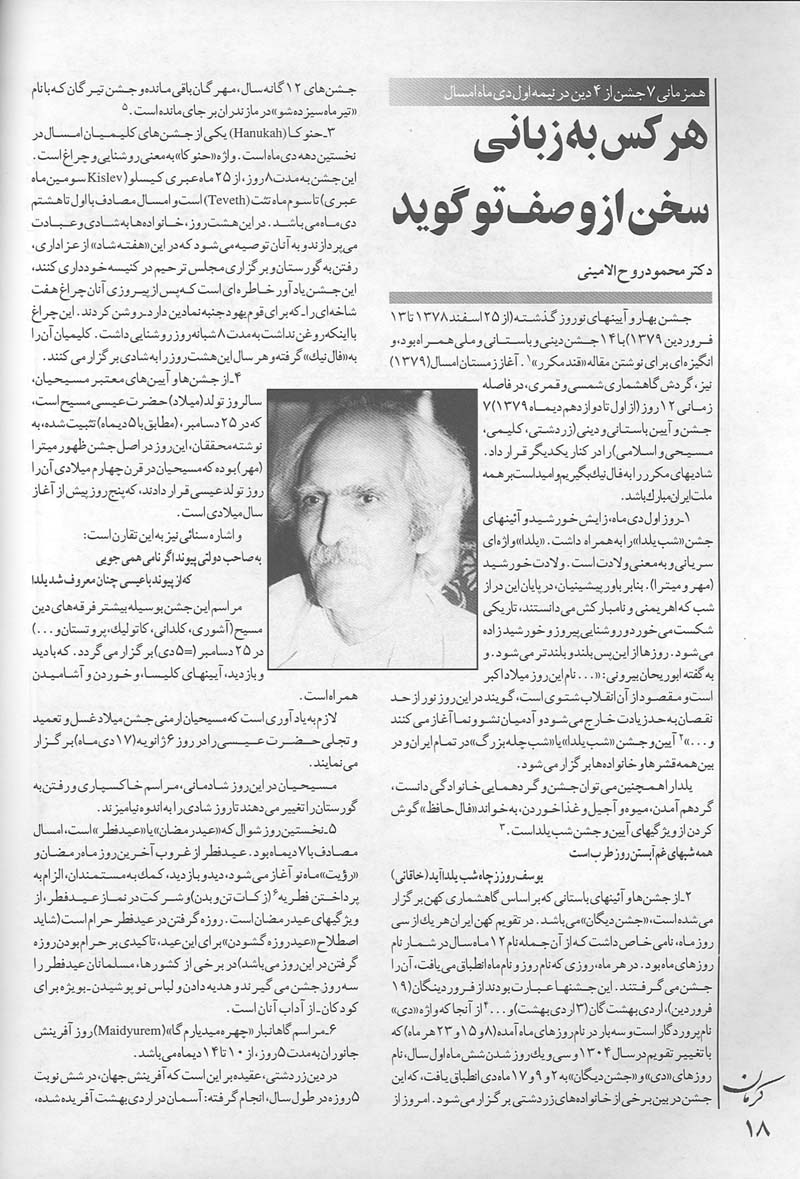 همزمانی ۷ جشن از ۴ دین در نیمه اول دی ماه امسال
هر کس به زبانی
سخن از وصف تو گوید
دکتر محمود روح الامینی
جشن بهار و آیینهای نوروز گذشته (از ۲۵ اسفند ۱۳۷۸ تا ۱۳
فروردین ۱۳۷۹) با ۱۴ جشن دینی و باستانی و ملی همراه بود، و
انگیزه ای برای نوشتن مقاله «قند مکرر»۱. آغاز زمستان امسال (۱۳۷۹)
نیز، گردش گاهشماری شمسی و قمری، در فاصله
زمانی ۱۲ روز (از اول تا دوازدهم دیماه ۱۳۷۹) ۷
جشن و آیین باستانی و دینی (زردشتی، کلیمی،
مسیحی و اسلامی) را در کنار یکدیگر قرار داد.
شادیهای مکرر را به فال نیك بگیریم و امید است بر همه
ملت ایران مبارك باشد.
۱ـ روز اول دی ماه، زایش خورشید و آئینهای
جشن «شب یلدا» را به همراه داشت. «یلدا» واژه ای
سریانی و به معنی ولادت است. ولادت خورشید
(مهر و میترا). بنابر باور پیشینیان، در پایان این دراز
شب که اهریمنی و نامبارکش می دانستند، تاریکی
شکست می خورد و روشنایی پیروز و خورشید زاده
می شود. روزها از این پس بلند و بلندتر می شود. و
به گفته ابوریحان بیرونی: «... نام این روز میلاد اکبر
است و مقصود از آن انقلاب شتوی است، گویند در این روز نور از حد
نقصان به حد زیادت خارج می شود و آدمیان نشو و نما آغاز می کنند
و...»۲ آیین و جشن «شب یلدا» یا «شب چله بزرگ» در تمام ایران و در
بین همه قشرها و خانواده ها برگزار می شود.
یلدا را همچنین می توان جشن و گردهمایی خانوادگی دانست،
گردهم آمدن، میوه و آجیل و غذا خوردن، به خواند «فال حافظ» گوش
کردن از ویژگیهای آیین و جشن شب یلدا است.۳
همه شبهای غم آبستن روز طرب است
یوسف روز ز چاه شب یلدا آید (خاقانی)
۲ـ از جشن ها و آئینهای باستانی که بر اساس گاهشماری کهن برگزار
می شده است، «جشن دیگان» می باشد. در تقویم کهن ایران هر یك از سی
روز ماه، نامی خاص داشت که از آن جمله نام ۱۲ ماه سال در شمار نام
روزهای ماه بود. در هر ماه، روزی که نام روز و نام ماه انطباق می یافت، آن را
جشن می گرفتند. این جشنها عبارت بودند از فروردینگان (۱۹
فروردین)، اردی بهشت گان (۳ اردی بهشت) و...۴ از آنجا که واژه «دی»
نام پروردگار است و سه بار در نام روزهای ماه آمده (۸ و ۱۵ و ۲۳ هر ماه) که
با تغییر تقویم در سال ۱۳۰۴ و سی و یك روز شدن شش ماه اول سال، نام
روزهای «دی» و «جشن دیگان» به ۲ و ۹ و ۱۷ ماه دی انطباق یافت، که این
جشن در بین برخی از خانواده های زردشتی برگزار می شود. امروز از
جشن های ۱۲ گانه سال، مهرگان باقی مانده و جشن تیرگان که با نام
«تیرماه سیزده شو» در مازندران بر جای مانده است.۵
۳ـ حنوکا (Hanukah) یکی از جشن های کلیمیان امسال در
نخستین دهه دی ماه است. واژه «حنوکا» به معنی روشنایی و چراغ است.
این جشن به مدت ۸ روز، از ۲۵ ماه عبری کیسلو (Kislev سومین ماه
عبری) تا سوم ماه تئت (Teveth) است و امسال مصادف با اول تا هشتم
دی ماه می باشد. در این هشت روز، خانواده ها به شادی و عبادت
می پردازند و به آنان توصیه می شود که در این «هفته شاد» از عزاداری،
رفتن به گورستان و برگزاری مجلس ترحیم در کنیسه خودداری کنند،
این جشن یادآور خاطره ای است که پس از پیروزی آنان چراغ هفت
شاخه ای را ـ که برای قوم یهود جنبه نمادین دارد ـ روشن کردند. این چراغ
با اینکه روغن نداشت به مدت ۸ شبانه روز روشنایی داشت. کلیمیان آن را
به «فال نیك» گرفته و هر سال این هشت روز را به شادی برگزار می کنند.
۴ـ از جشن ها و آیین های معتبر مسیحیان،
سالروز تولد (میلاد) حضرت عیسی مسیح است،
که در ۲۵ دسامبر، (مطابق با ۵ دیماه) تثبیت شده، به
نوشته محققان، این روز در اصل جشن ظهور میترا
(مهر) بوده که مسیحیان در قرن چهارم میلادی آن را
روز تولد عیسی قرار دادند، که پنج روز پیش از آغاز
سال میلادی است.
و اشاره سنائی نیز به این تقارن است:
به صاحب دولتی پیوند اگر نامی همی جویی
که از پیوند با عیسی چنان معروف شد یلدا
مراسم این جشن بوسیله بیشتر فرقه های دین
مسیح (آشوری، کلدانی، کاتولیك، پروتستان و...)
در ۲۵ دسامبر (=۵ دی) برگزار می گردد. که با دید
و بازدید، آیینهای کلیسا، و خوردن و آشامیدن
همراه است.
لازم به یادآوری است که مسیحیان ارمنی جشن میلاد غسل و تعمید
و تجلی حضرت عیسی را در روز ۶ ژانویه (۱۷ دی ماه) برگزار
می نمایند.
مسیحیان در این روز شادمانی، مراسم خاکسپاری و رفتن به
گورستان را تغییر می دهند تا روز شادی را به اندوه نیامیزند.
۵ـ نخستین روز شوال که «عید رمضان» یا «عید فطر» است، امسال
مصادف با ۷ دیماه بود. عید فطر از غروب آخرین روز ماه رمضان و
«رؤیت» ماه نو آغاز می شود، دید و بازدید، کمك به مستمندان، الزام به
پرداختن فطریه۶ (زکات تن و بدن) و شرکت در نماز عید فطر، از
ویژگیهای عید رمضان است. روزه گرفتن در عید فطر حرام است (شاید
اصطلاح «عید روزه گشودن» برای این عید، تاکیدی بر حرام بودن روزه
گرفتن در این روز می باشد) در برخی از کشورها، مسلمانان عید فطر را
سه روز جشن می گیرند و هدیه دادن و لباس نو پوشیدن ـ بویژه برای
کودکان ـ از آداب آنان است.
۶ـ مراسم گاهانبار «چهره میدیارم گا» (Maidyurem) روز آفرینش
جانوران به مدت ۵ روز، از ۱۰ تا ۱۴ دیماه می باشد.
در دین زردشتی، عقیده بر این است که آفرینش جهان، در شش نوبت
۵ روزه در طول سال، انجام گرفته: آسمان در اردی بهشت آفریده شده،
کرمان
۱۸